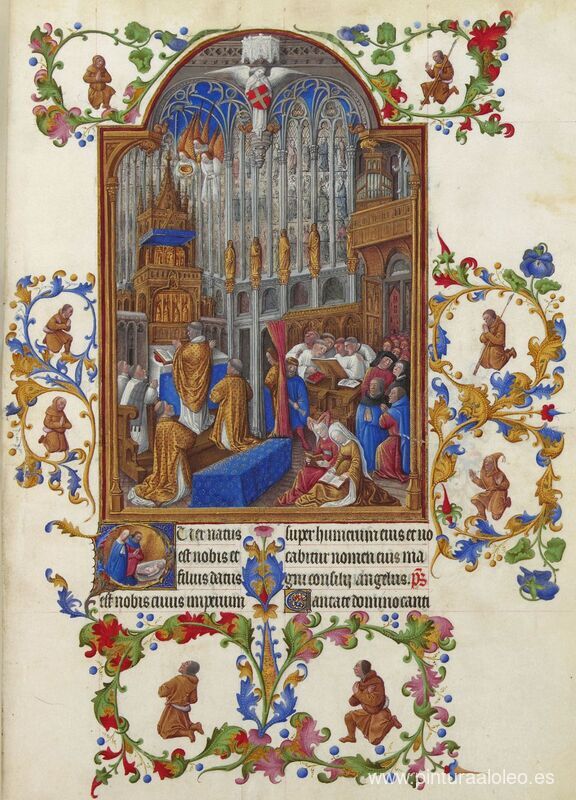 Puer natus
est nobis et
filius datus
est nobis cuius imperium
super humerum eius et uo
cabitur nomen eius ma
gni consilij angelus. ps
Cantate domino canti
www.pinturaaloleo.es